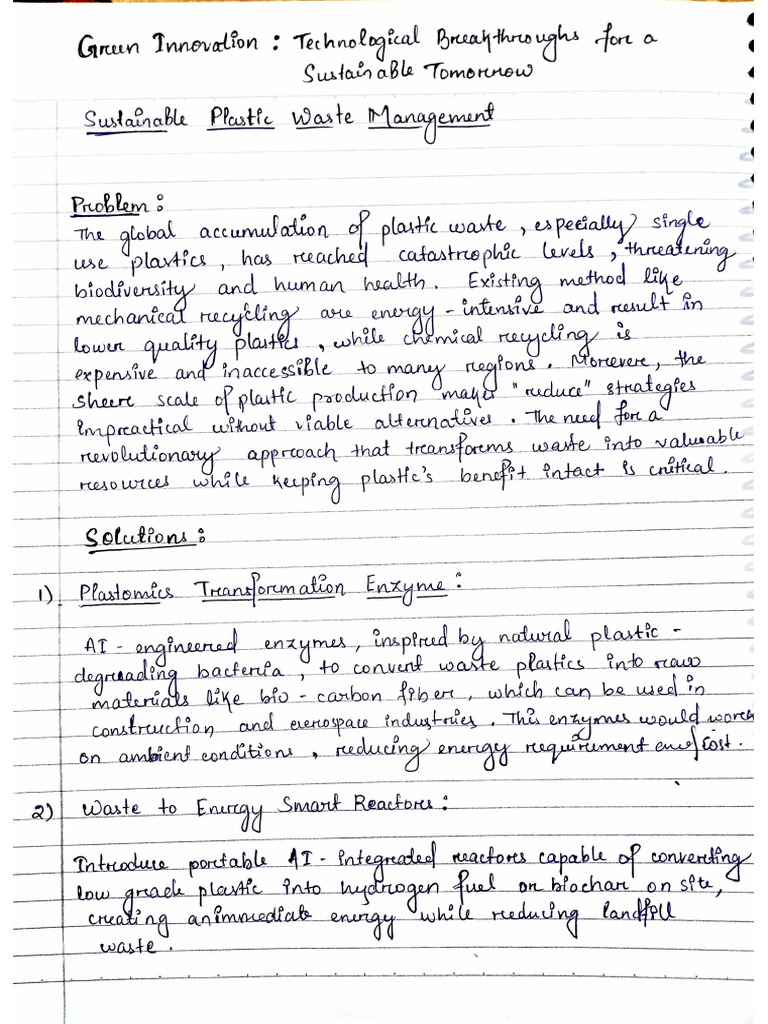 Green Innovation : Technological Breakthroughs for a
Sustainable Tomorrow
Sustainable Plastic Waste Management
Problem :
The global accumulation of plastic waste , especially single
use plastics , has reached catastrophic levels , threatening
biodiversity and human health . Existing method like
mechanical recycling are energy - intensive and result in
lower quality plastics , while chemical recycling is
expensive and inaccessible to many regions . Moreover , the
sheer scale of plastic production makes "reduce" strategies
impractical without viable alternatives . The need for a
revolutionary approach that transforms waste into valuable
resources while keeping plastic's benefit intact is critical .
Solutions :
1) . Plastomics Transformation Enzyme :
AI - engineered enzymes , inspired by natural plastic -
degreading bacteria , to convert waste plastics into raw
materials like bio - carbon fiber , which can be used in
construction and aerospace industries . This enzymes would work
on ambient conditions , reducing energy requirement and cost .
2) Waste to Energy Smart Reactors :
Introduce portable AI - integreaded reactors capable of converting
low grade plastic into hydrogen fuel or biochar on site ,
creating an immediate energy while reducing landfill
waste .